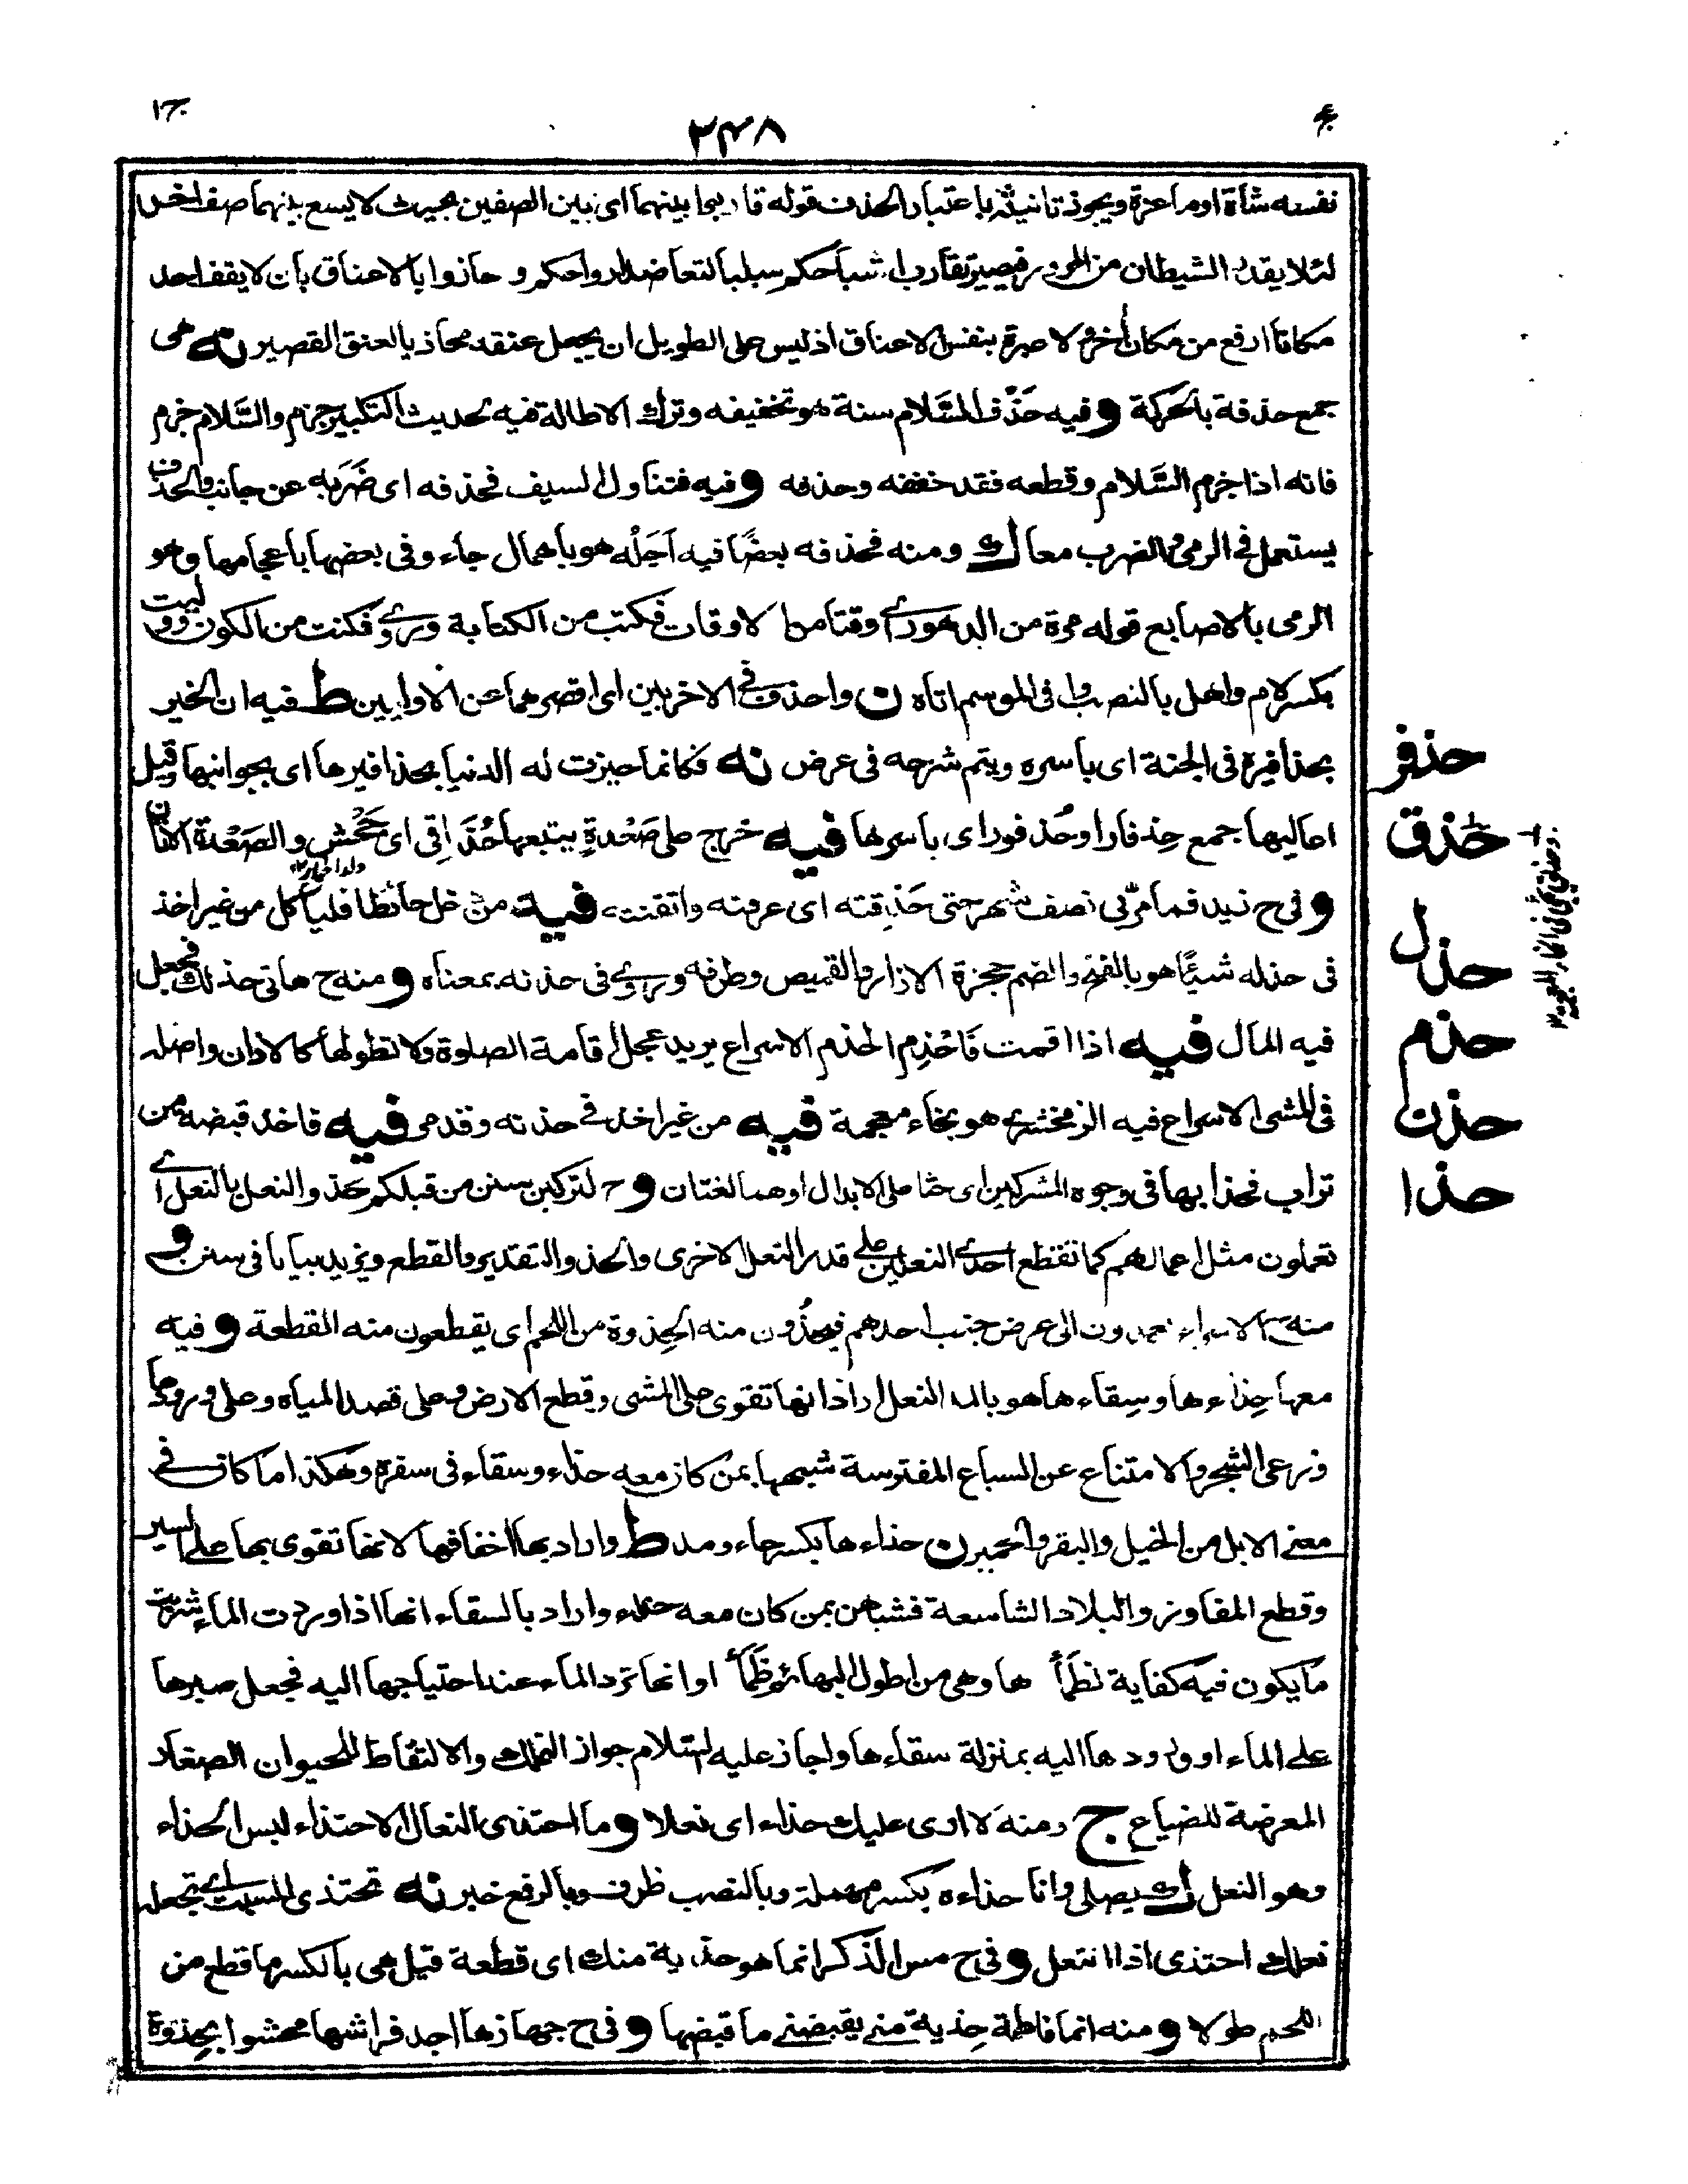 ٢٤٨
نفسه شاة او ماعزة ويجوز تانيثه باعتبار الحذف قوله قاربوا بينهما اى بين الصفين بحيث لا يسع بينهما صف اخر
لئلا يقدر الشيطان من المرور فيصير تقارب اشباحكم سببا لتعاضد ارواحكم و حاذوا بالاعناق بان لا يقف احد
مكانا ارفع من مكان اخر ولا عبرة بنفس الاعناق اذ ليس على الطويل ان يجعل عنقه محاذيا لعنق القصير نه هى
جمع حذفة بالحركة وفيه حَذْف السَّلام سنة هو تخفيفه وترك الاطالة فيه لحديث التكبير جزم والسَّلام جزم
فانه اذا جزم السَّلام وقطعه فقد خففه وحذفه وفيه فتناول السيف فحذفه اى ضَرَبه عن جانب والحذف
يستعمل في الرمى والضرب معا ك ومنه فحذفه بعضًا فيه اَجَلُه هو باهمال حاء وفى بعضها باعجامها وهو
الرمى بالاصابع قوله مرة من الدهور اى وقتا من الاوقات فكتب من الكتابة وروى وكنت من الكون وو ليت
بكسر لام واهل بالنصب اى فى الموسم اتاه ن واحذف فى الاخريين اى اقصرهما عن الاوليين ط فيه ان الخير
بحذافيره فى الجنة اى باسره ويتم شرحه فى عرض نه فكانما حيزت له الدنيا بحذافيرها اى بجوانبها وقيل
اعاليها جمع حِذفار او حُذفور اى باسرها فيه خرج على صَعْدةٍ يتبعها حُذَاقِى اى جَحْش والصَعْدة الاتان
ولد الحمار ١٢
وفى ح زيد فما مرّ بى نصف شهر حتى حَذِقته اى عرفته واتقنته فيه من دخل حائطا فلياكل من غير اخذ
فى حذله شيئًا هو بالفتح والضم حجزة الازار والقميص وطرفه وروى فى حذنه بمعناه ومنه ح هاتى حذلك فجعل
فيه المال فيه اذا اقمت فَاحْذِم الحذم الاسراع يريد عجل اقامة الصلوة ولا تطولها كالاذان واصله
فى المشى الاسراع فيه الزمخشرى هو بخاء معجمة فيه من غير اخذ فى حذنه وقد مر فيه فاخذ قبضة من
تراب فحذا بها فى وجوه المشركين اى حثا على الابدال او هما لغتان و ح لتركبن سنن من قبلكم حَذو النعل بالنعل اى
تعملون مثل اعمالهم كما تقطع احدى النعلين على قدر النعل الاخرى والحذو التقدير والقطع ويزيد بيانا فى سنن و
منه ح الاسراء يعمدون الى عرض جنب احدهم فيحذُون منه الحذوة من اللحم اى يقطعون منه القطعة وفيه
معها حِذاءها وسِقاءها هو بالمد النعل اراد انها تقوى على المشى وقطع الارض وعلى قصد المياه وعلى ورودها
ورعى الشجر والامتناع عن السباع المفترسة شبهها بمن كان معه حذاء وسقاء فى سفره وهكذا ما كان فى
معنى الابل من الخيل والبقر والحمير ن حذاءها بكسر حاء ومد ط واراد بها اخفافها لانها تقوى بها على السير
وقطع المفاوز والبلاد الشاسعة فشبهن بمن كان معه حذاء واراد بالسقاء انها اذا وردت الماء شربت
ما يكون فيه كفاية لظمأها وهى من اطول البهائم ظَمَأً او انها ترد الماء عند احتياجها اليه فجعل صبرها
على الماء او ورودها اليه بمنزلة سقاءها واجاز عليه السّلام جواز التملك والالتقاط للحيوان الصغار
المعرضة للضياع ج ومنه لا ارى عليك حذاء اى نعلا وما احتذى النعال الاحتذاء لبس الحذاء
وهو النعل ك يصلى وانا حذاءه بكسر مهملة وبالنصب ظرف وبالرفع خبر نه تحتذى السبت اى تجعله
نعلك احتذى اذا انتعل وفى ح مس الذكر انما هو حذية منك اى قطعة قيل هى بالكسر ما قطع من
اللحم طولا ومنه انما فاطمة حِذية منى يقبضنى ما قبضها وفى ح جهازها احد فراشها محشوا بحِذوة
حذفر
حذق
حذل
حذم
حذن
حذا